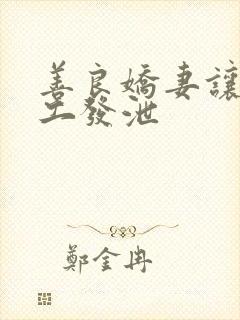 善良嬌妻讓
工發泄
鄭金冉